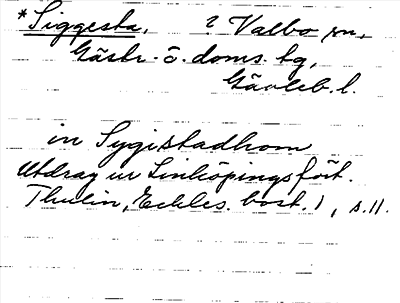 *Siggesta, ? Valbo sn,
Gästr. ö. doms. tg,
Gävleb. l.
in Sygistadhom
Utdrag ur Linköpingsfört.
Thulin, Eckles. bost. 1, s. 11.